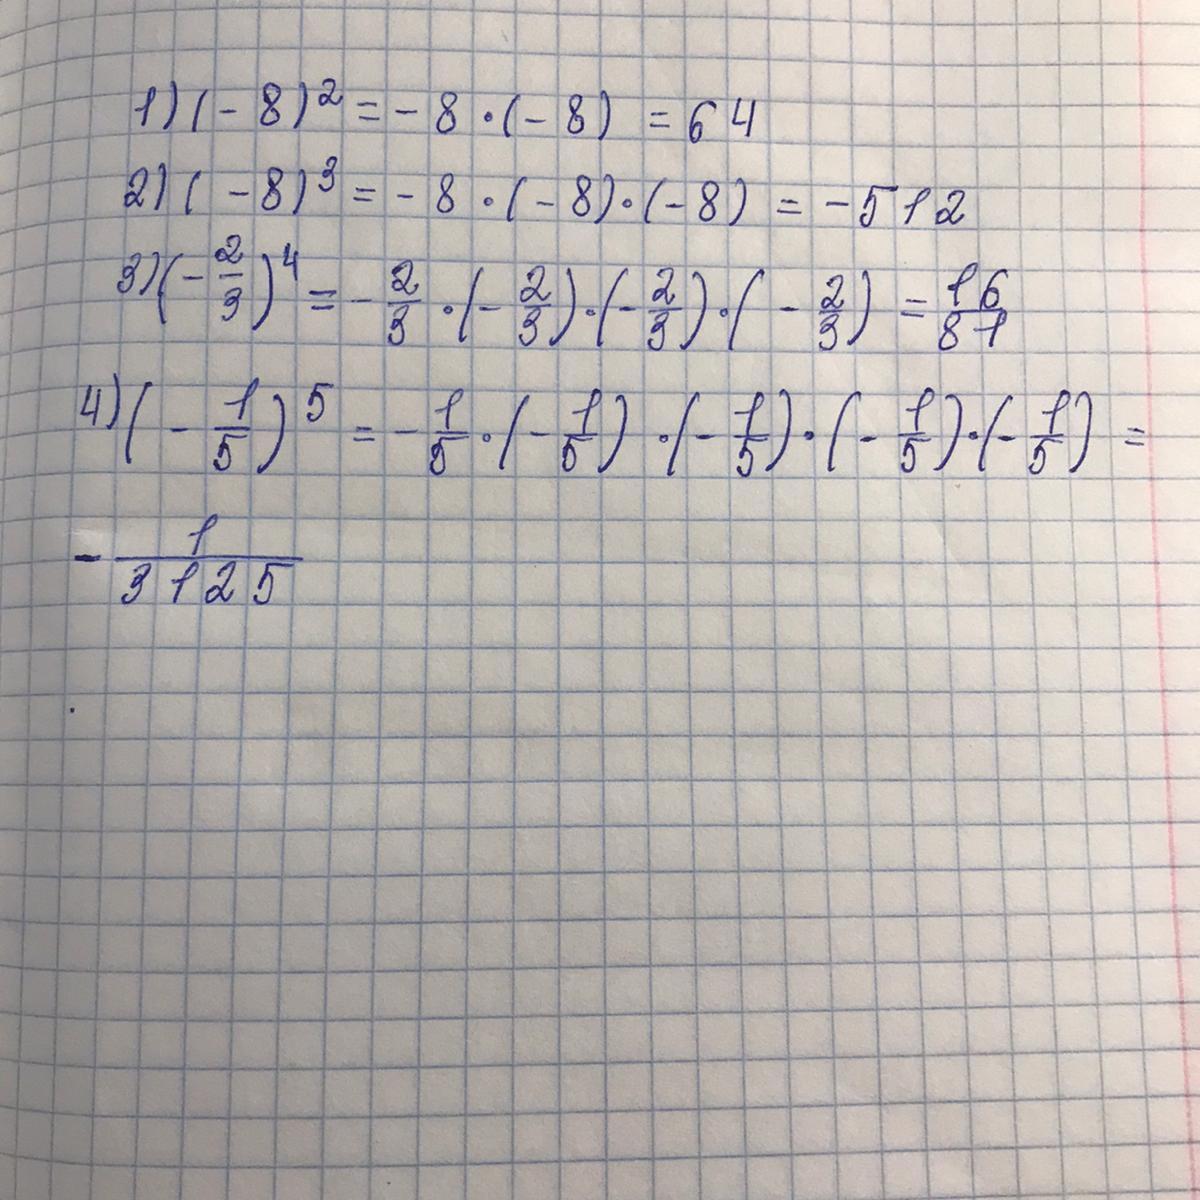 1) (-8)² = -8 · (-8) = 64
2) (-8)³ = -8 · (-8) · (-8) = -512
3) (-2/3)⁴ = -2/3 · (-2/3) · (-2/3) · (-2/3) = 16/81
4) (-1/5)⁵ = -1/5 · (-1/5) · (-1/5) · (-1/5) · (-1/5) =
-1/3125